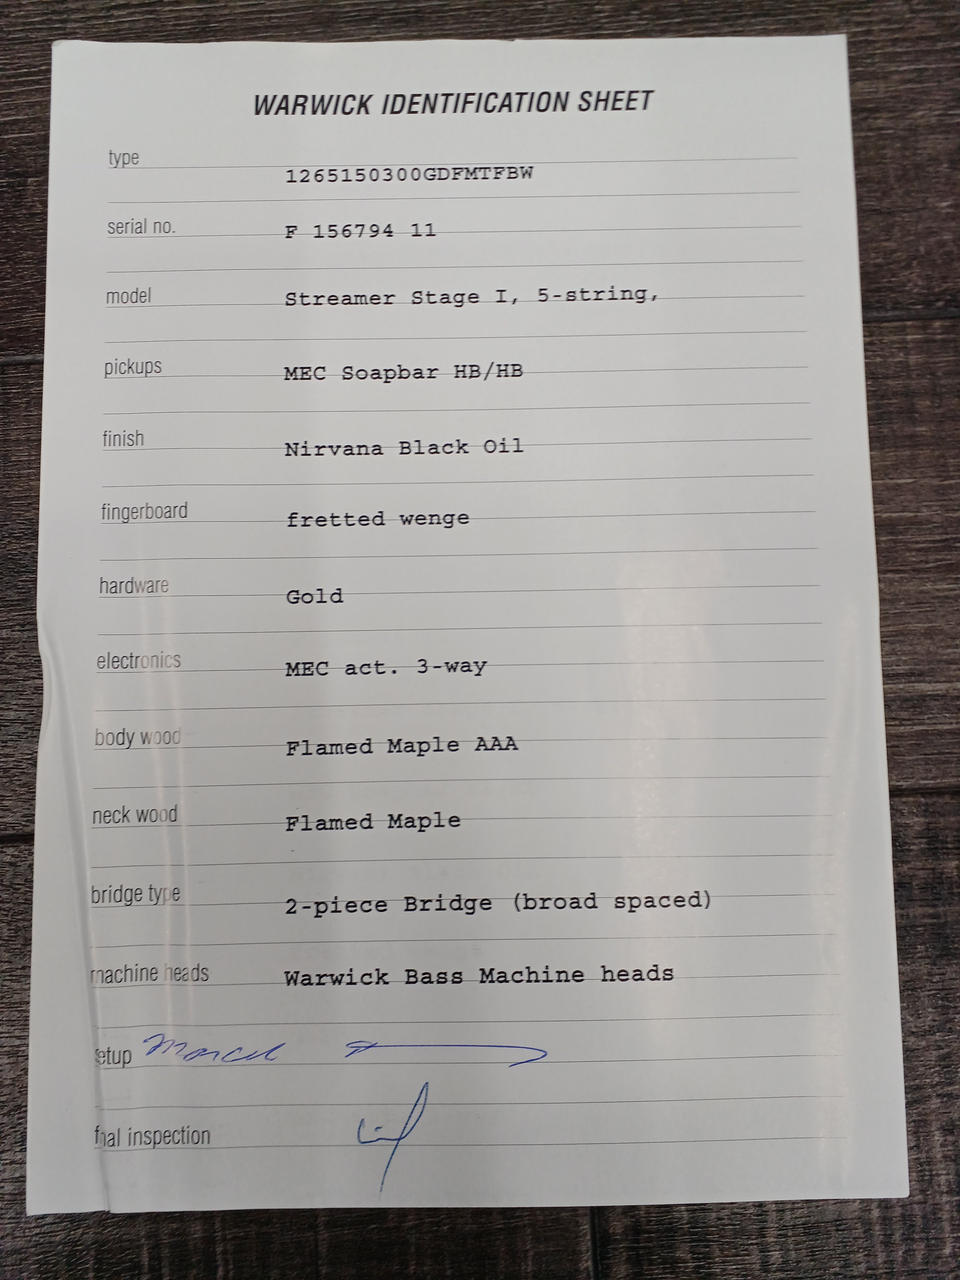 WARWICK IDENTIFICATION SHEET
type 1265150300GDFMTFBW
serial no. F 156794 11
model Streamer Stage I, 5-string,
pickups MEC Soapbar HB/HB
finish Nirvana Black Oil
fingerboard fretted wenge
hardware Gold
electronics MEC act. 3-way
body wood Flamed Maple AAA
neck wood Flamed Maple
bridge type 2-piece Bridge (broad spaced)
machine heads Warwick Bass Machine heads
setup Marcel
final inspection